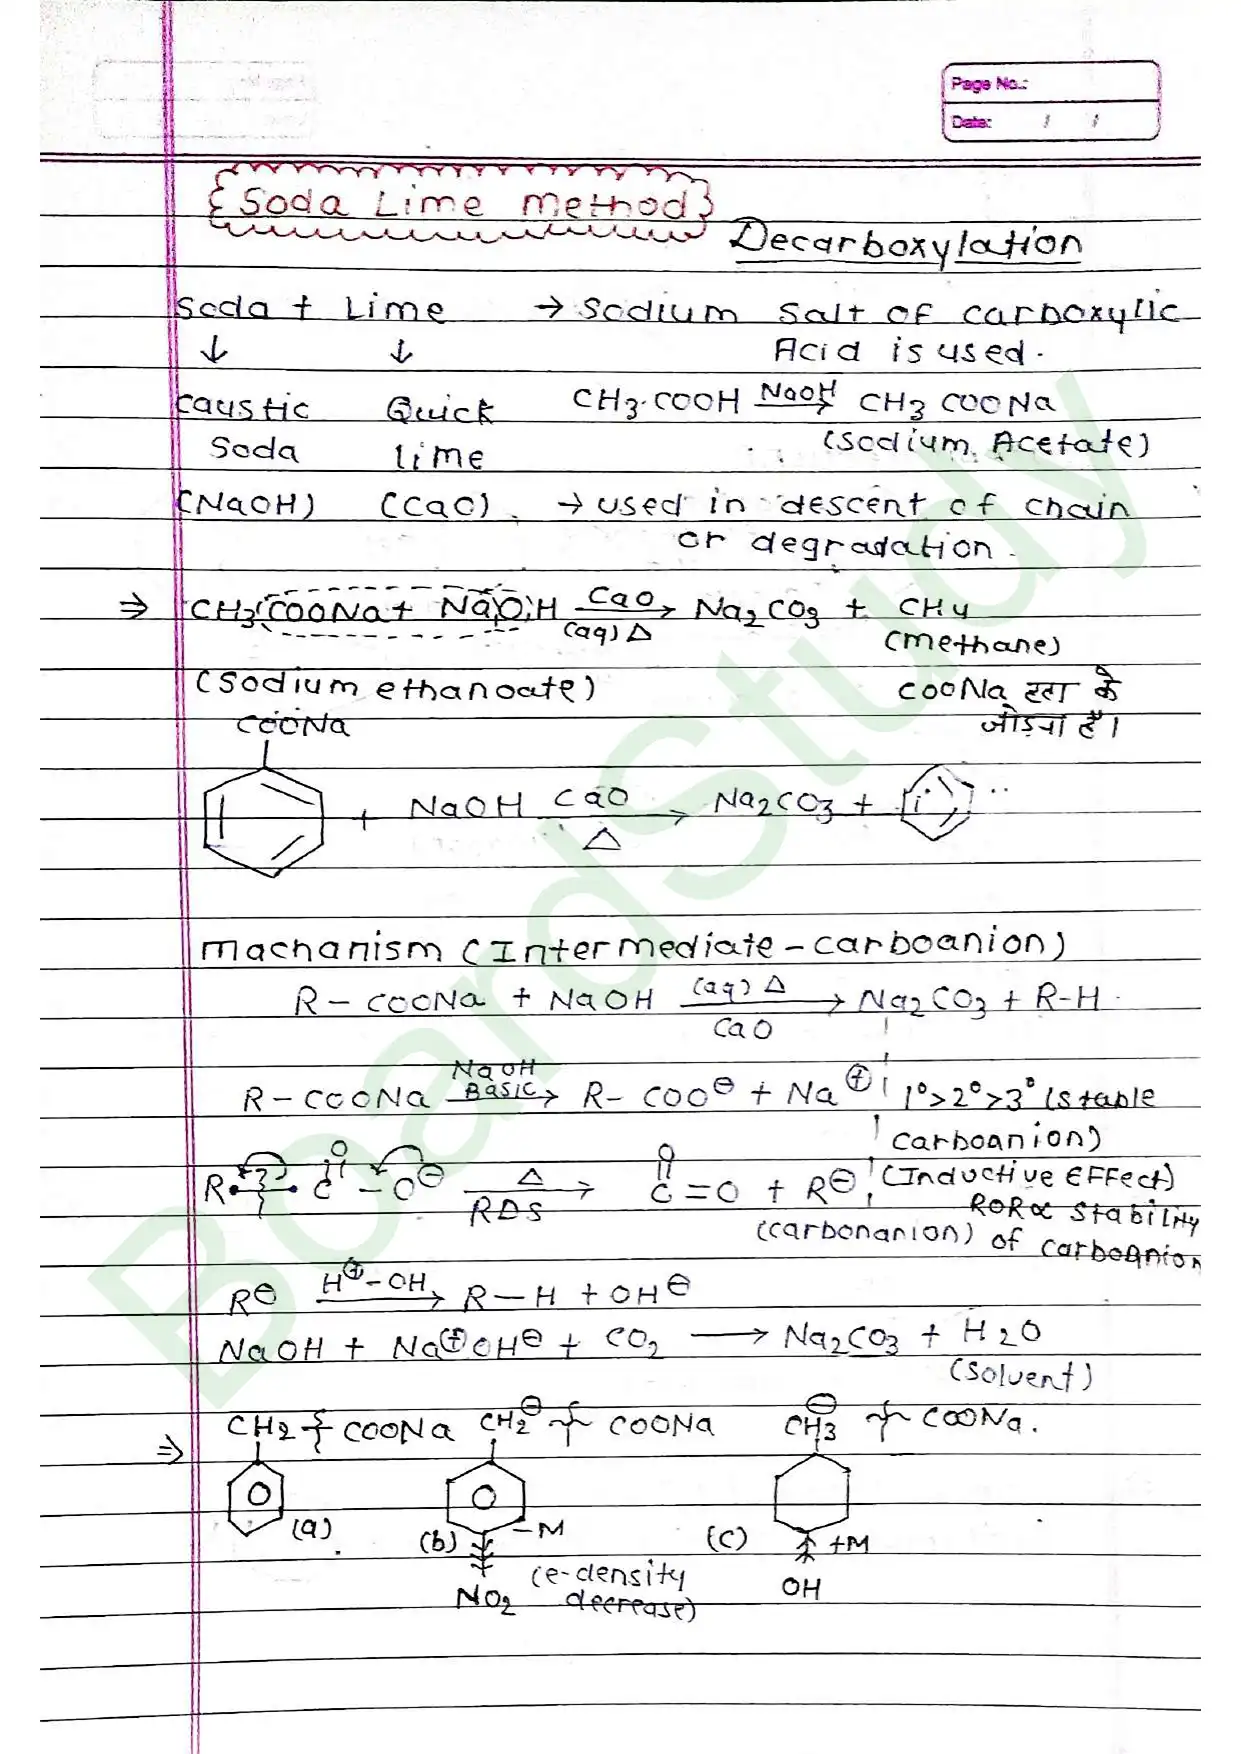 Page No.:
Date: / /
Soda Lime method
Decarboxylation
Soda + Lime → Sodium Salt of carboxylic
Acid is used.
↓ ↓
caustic Quick CH3.COOH NaOH→ CH3COONa
Soda lime (Sodium Acetate)
(NaOH) (CaO) → used in descent of chain
or degradation.
⇒ CH3COONa + NaOH CaO (aq) Δ → Na2CO3 + CH4
(methane)
(Sodium ethanoate) COONa हटा के
COONa जोड़ना है।
+ NaOH CaO Δ → Na2CO3 +
Machanism (Intermediate - carboanion)
R - COONa + NaOH (aq) Δ CaO → Na2CO3 + R-H
R - COONa NaOH BASIC → R- COO⊖ + Na⊕ 1°>2°>3° (stable
carboanion)
R - C - O⊖ Δ RDS → C = O + R⊖ (Inductive Effect)
O O
ROR∝ Stability
(carbonanion) of carboanion
R⊖ H⊕-OH → R-H + OH⊖
NaOH + Na⊕OH⊖ + CO2 → Na2CO3 + H2O
(Solvent)
⇒ CH2 COONa CH2⊖ COONa CH3⊖ COONa.
(a) (b) -M (c) +M
NO2 (e-density decrease) OH
BoardStudy